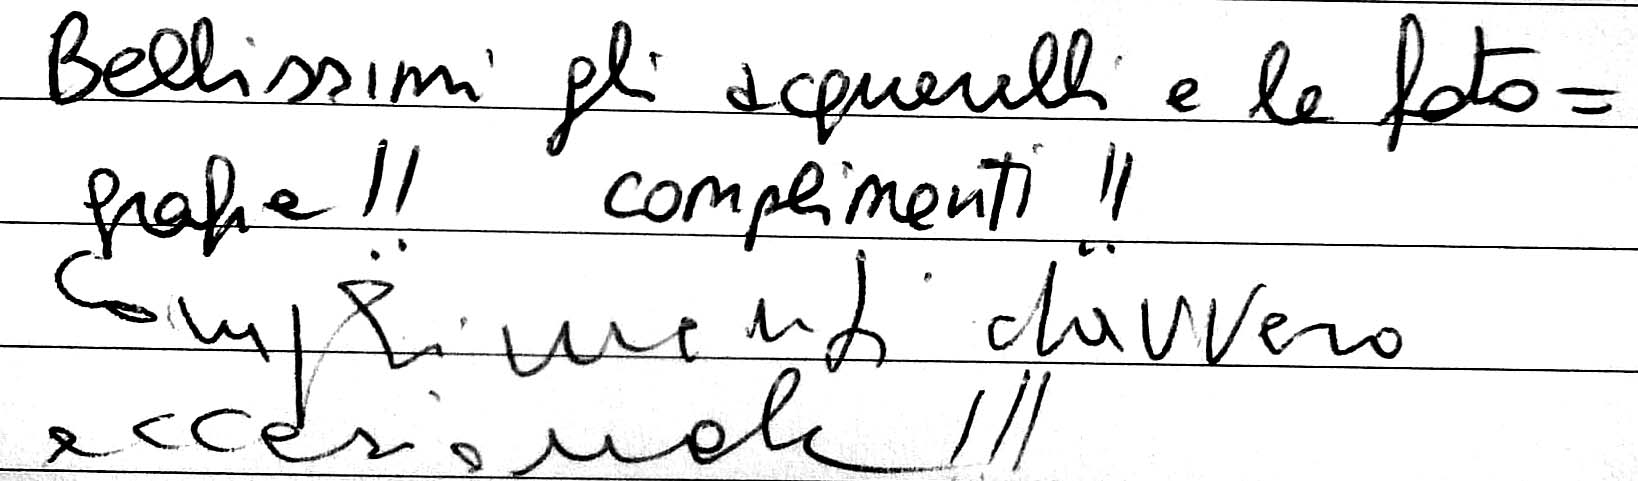 Bellissimi gli acquerelli e le foto=
grafie!! complimenti!!
Complimenti davvero
eccezionale!!!